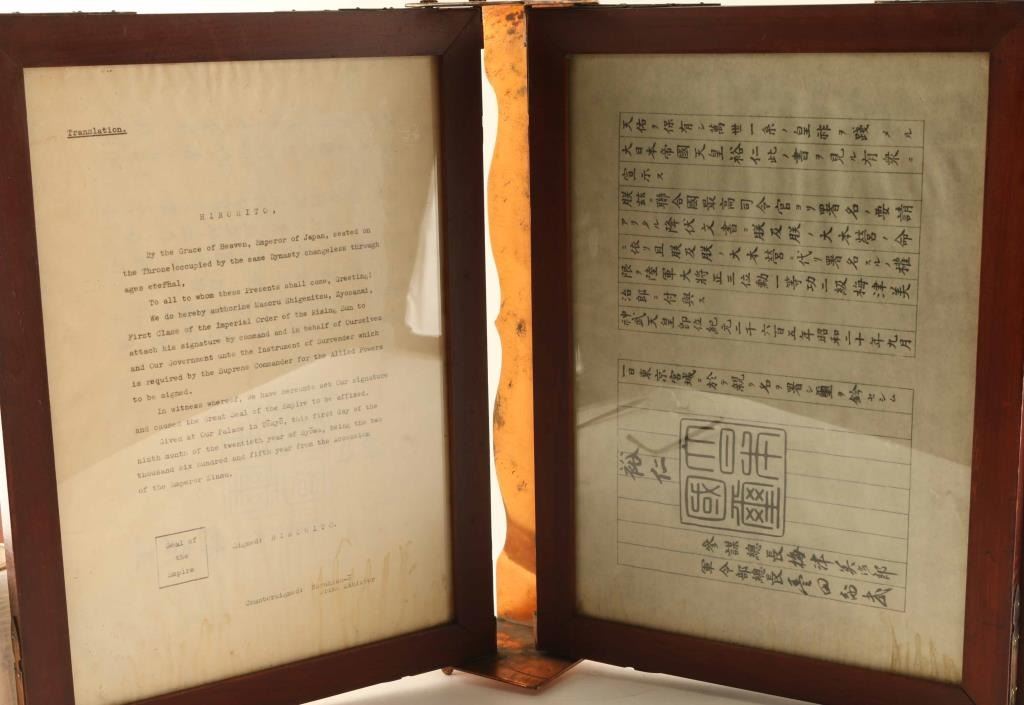 Translation.
HIROHITO,
By the Grace of Heaven, Emperor of Japan, seated on
the Throne occupied by the same Dynasty changeless through
ages eternal,
To all to whom these Presents shall come, Greeting!
We do hereby authorise Mamoru Shigemitsu, Zyosanmi,
First Class of the Imperial Order of the Rising Sun to
attach his signature by command and in behalf of Ourselves
and Our Government unto the Instrument of Surrender which
is required by the Supreme Commander for the Allied Powers
to be signed.
In witness whereof, We have hereunto set Our signature
and caused the Great Seal of the Empire to be affixed.
Given at Our Palace in Tōkyō, this first day of the
ninth month of the twentieth year of Syōwa, being the two
thousand six hundred and fifth year from the Accession
of the Emperor Zinmu.
Seal of
the
Empire
Signed: HIROHITO.
Countersigned:
Prime Minister
天佑ヲ保有シ萬世一系ノ皇祚ヲ踐メル
大日本帝國天皇裕仁此ノ書ヲ見ル有衆ニ
宣示ス
朕茲ニ聯合國最高司令官ヨリ署名ノ要請
アリタル降伏文書ニ朕及朕ノ大本營ノ命
ニ依リ且朕及朕ノ大本營ニ代リ署名スルノ權
限ヲ陸軍大將正三位勳一等功二級梅津美
治郎ニ付與ス
神武天皇即位紀元二千六百五年昭和二十年九月
一日東京宮城ニ於テ親ラ名ヲ署シ璽ヲ鈐セシム
裕仁
大日本國璽
參謀總長梅津美治郎
軍令部總長豊田副武